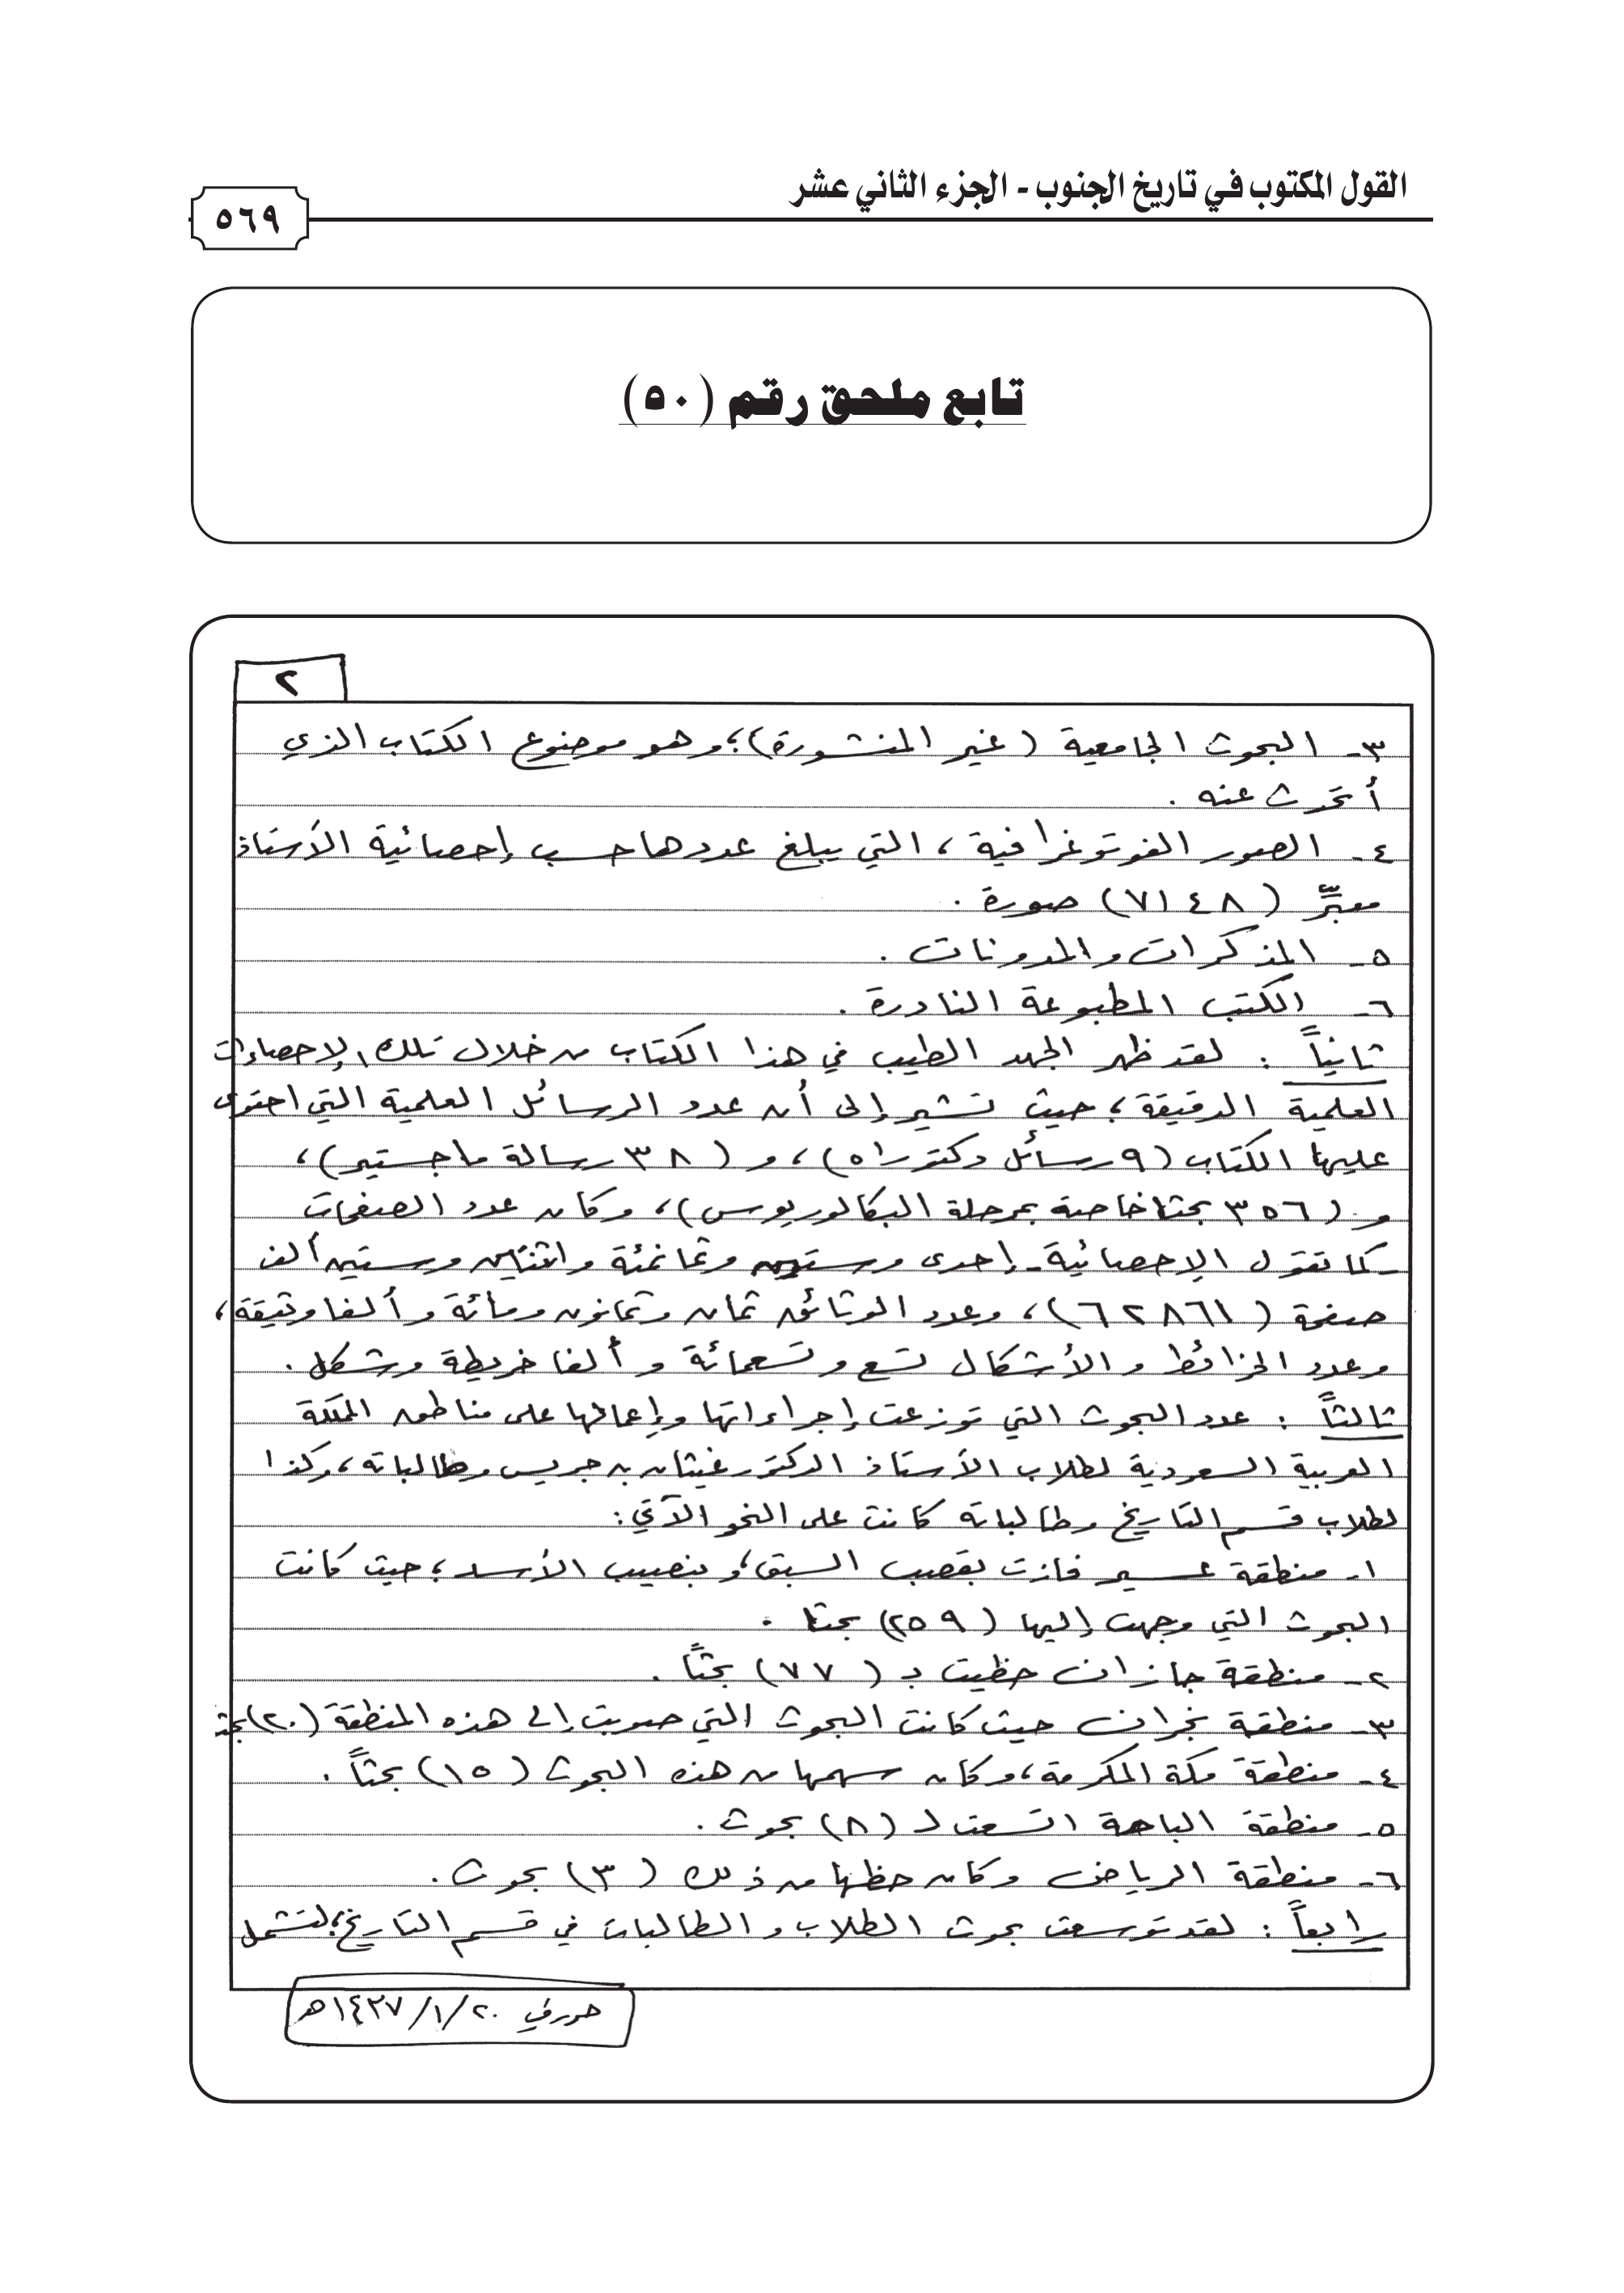 القول المكتوب في تاريخ الجنوب - الجزء الثاني عشر
٥٦٩
تابع ملحق رقم (٥٠)
٢
٣- البحوث الجامعية (غير المنشورة)؛ وهو موضوع الكتاب الذي
أتحدث عنه .
٤- الصور الفوتوغرافية ، التي يبلغ عددها حسب إحصائية الأستاذ
معبّر (٧١٤٨) صورة .
٥- المذكرات والمدونات .
٦- الكتب المطبوعة النادرة .
ثانياً : لقد ظهر الجهد الطيب في هذا الكتاب من خلال تلك الإحصاءات
العلمية الدقيقة؛ حيث تشير إلى أن عدد الرسائل العلمية التي احتوى
عليها الكتاب (٩ رسائل دكتوراه)، و (٣٨ رسالة ماجستير)،
و (٣٥٦ بحثا خاصة بمرحلة البكالوريوس)، وكان عدد الصفحات
- كما تقول الإحصائية - إحدى وستين وثمانمئة واثنتين وستين ألف
صفحة (٦٢٨٦١)، وعدد الوثائق ثمان وثمانون ومائة وألفا وثيقة،
وعدد الخرائط والأشكال تسع وتسعمائة وألفا خريطة وشكل .
ثالثاً : عدد البحوث التي توزعت إجراءاتها وإعمالها على مناطق المملكة
العربية السعودية لطلاب الأستاذ الدكتور غيثان بن جريس وطالباته، وكذا
لطلاب قسم التاريخ وطالباته كانت على النحو الآتي:
١- منطقة عسير فازت بقصب السبق، وبنصيب الأسد؛ حيث كانت
البحوث التي وجهت إليها (٢٥٩) بحثا .
٢- منطقة جازان حظيت بـ (٧٧) بحثاً .
٣- منطقة نجران حيث كانت البحوث التي صوبت إلى هذه المنطقة (٢٠) بحثا
٤- منطقة مكة المكرمة، وكان سهمها من هذه البحوث (١٥) بحثاً .
٥- منطقة الباحة اتسعت لـ (٨) بحوث .
٦- منطقة الرياض وكان حظها من ذلك (٣) بحوث .
رابعاً : لقد توسعت بحوث الطلاب والطالبات في قسم التاريخ؛ لتشمل
٢٠/١/١٤٣٧هـ